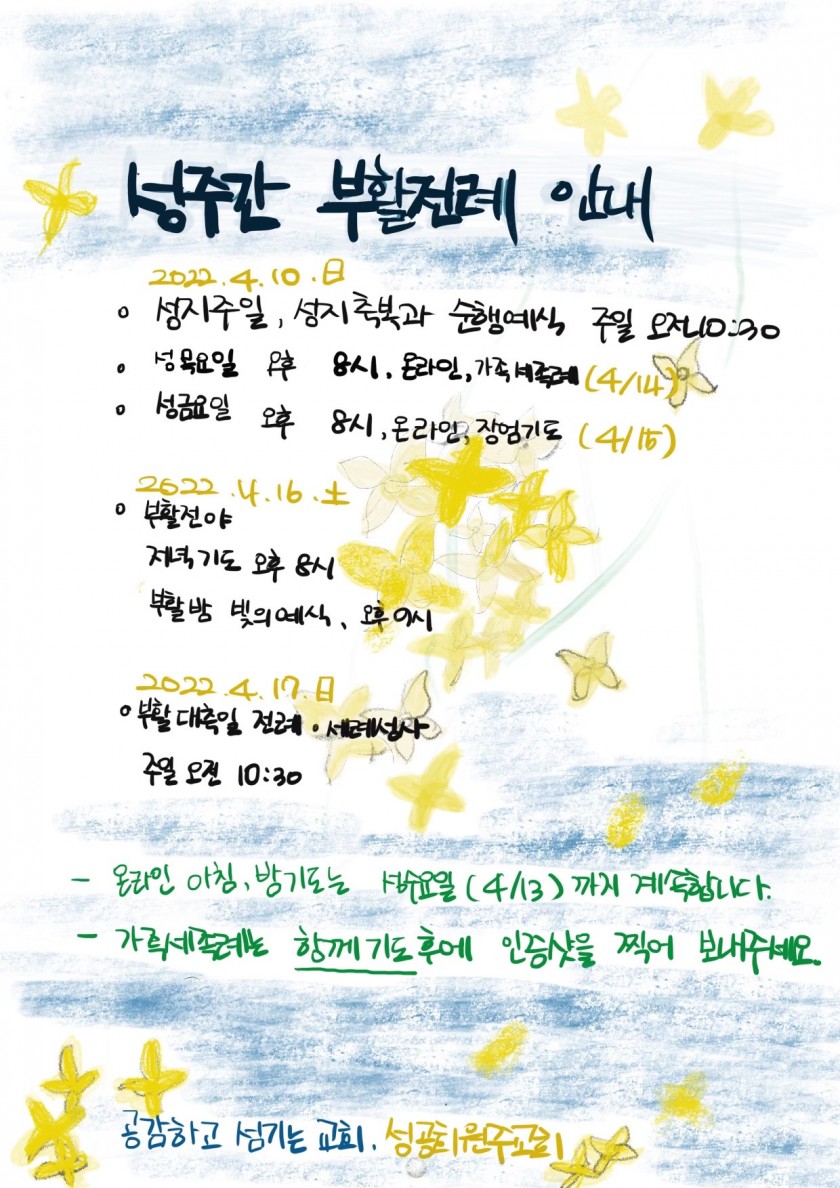 성주간 부활전례 안내
2022.4.10.日
성지주일, 성지축복과 순행예식 주일 오전10:30
성목요일 오후 8시, 온라인, 가족세족례 (4/14)
성금요일 오후 8시, 온라인, 장엄기도 (4/15)
2022.4.16.土
부활전야
저녁기도 오후 8시
부활밤 빛의예식, 오후 9시
2022.4.17.日
부활대축일 전례·세례성사
주일 오전 10:30
- 온라인 아침, 밤기도는 성수요일(4/13)까지 계속합니다.
- 가족세족례는 함께기도후에 인증샷을 찍어 보내주세요.
공감하고 섬기는 교회. 성공회원주교회